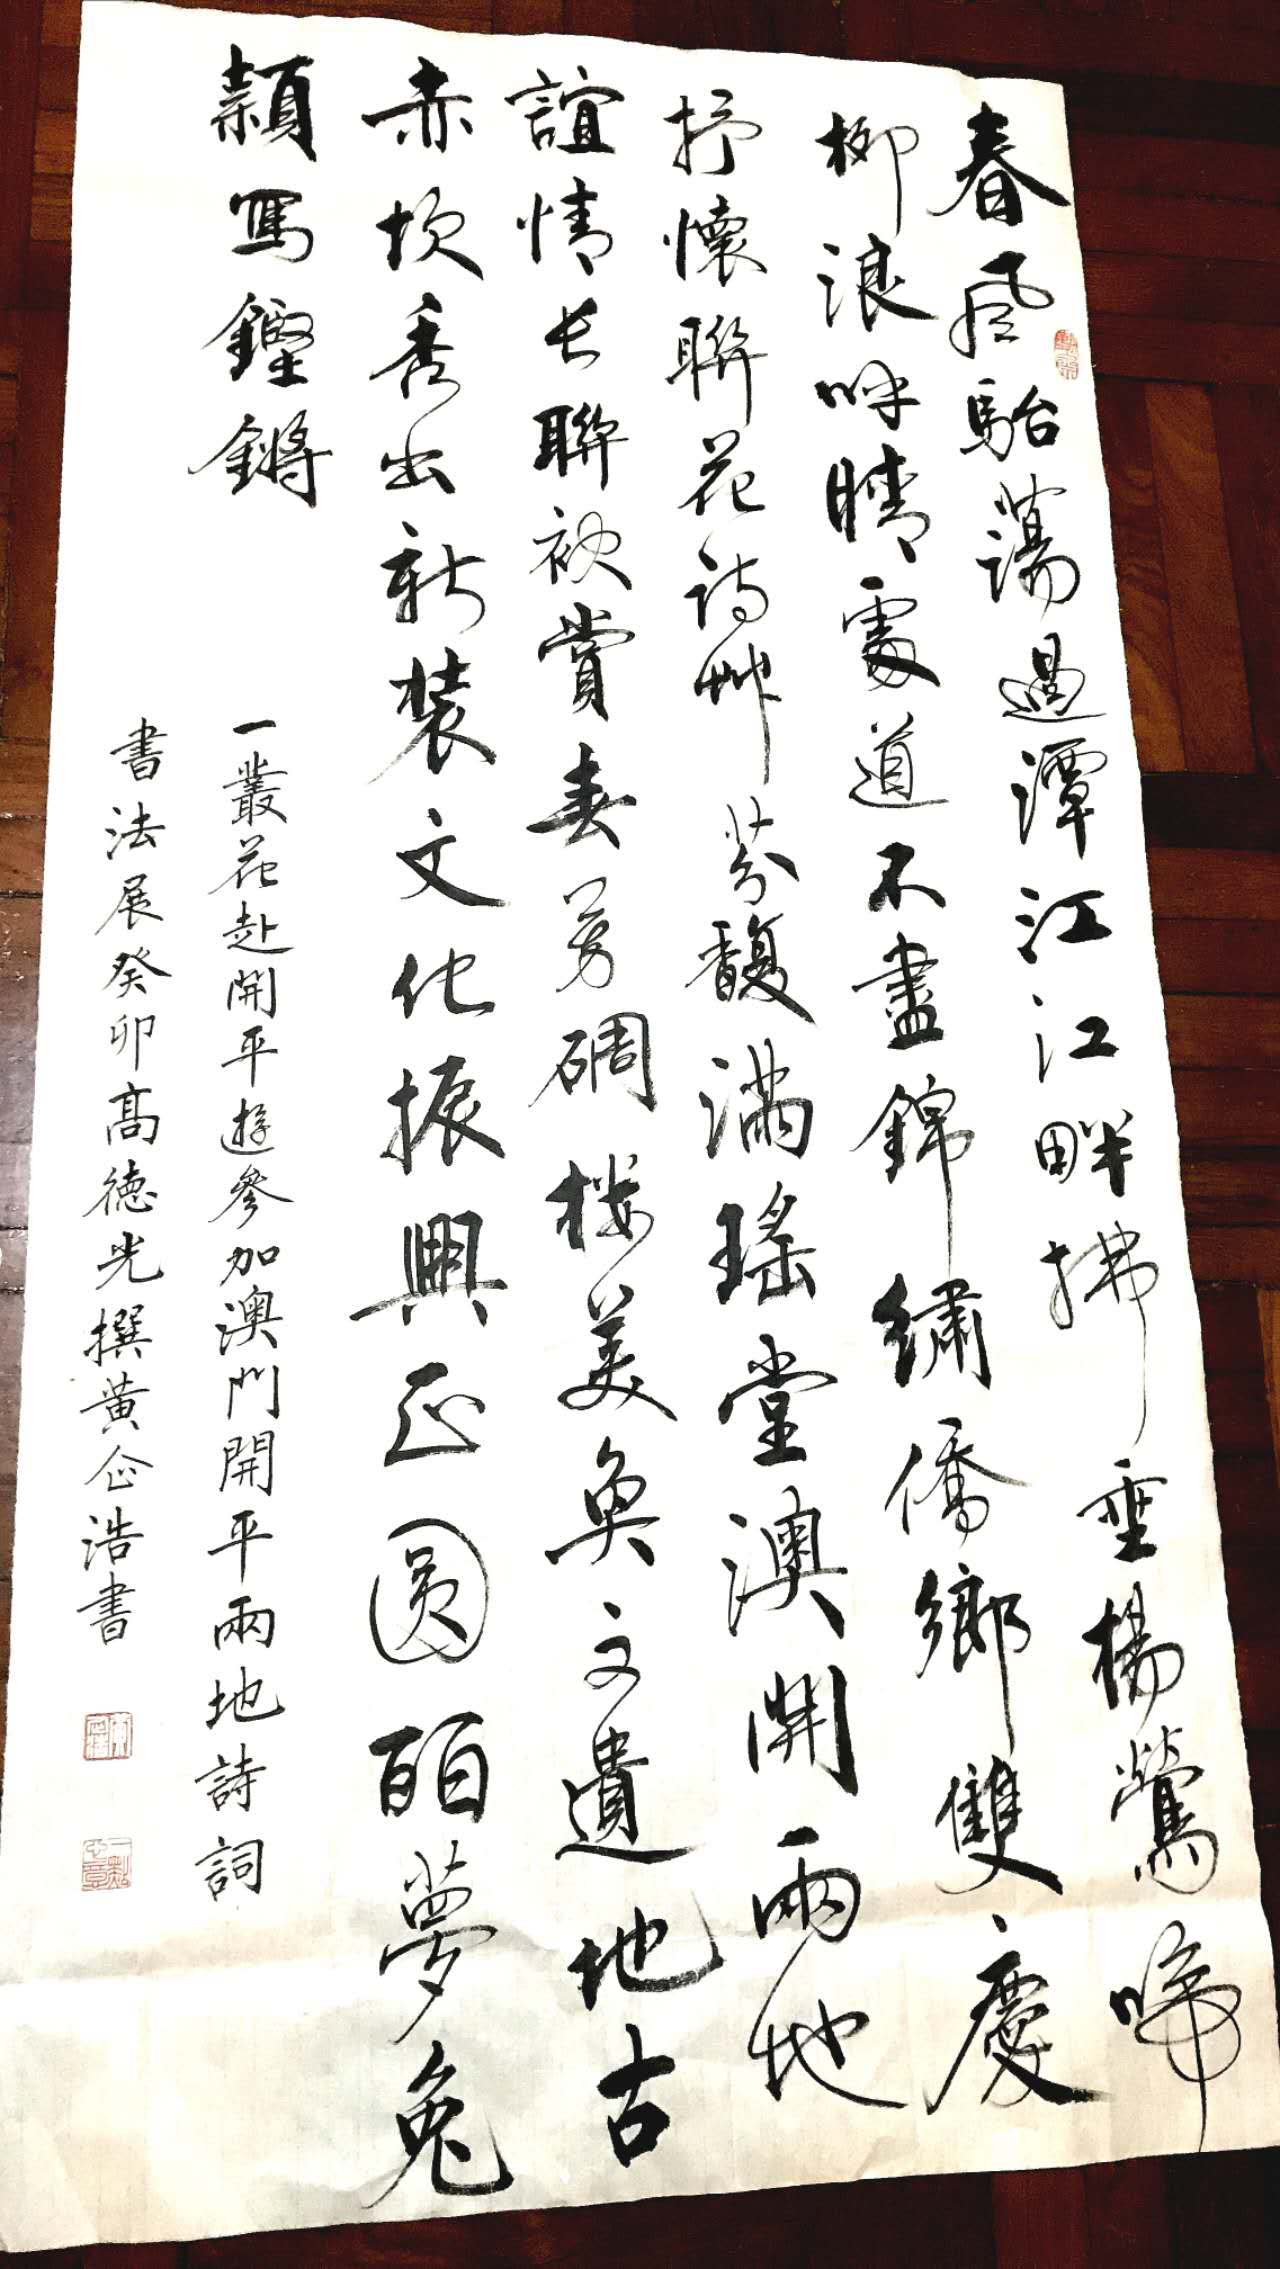 春風駘蕩過潭江江畔拂垂楊鶯啼
柳浪呼晴處道不盡錦繡僑鄉雙慶
抒懷聯花詩艸芬馥滿瑤堂澳開兩地
誼情長聯袂賞春芳碉楼美奐文遺地古
赤坎秀出新裝文化振興正圓皕夢兔
穎寫鏗鏘
一叢花赴開平遊參加澳門開平兩地詩詞
書法展癸卯高德光撰黃企浩書